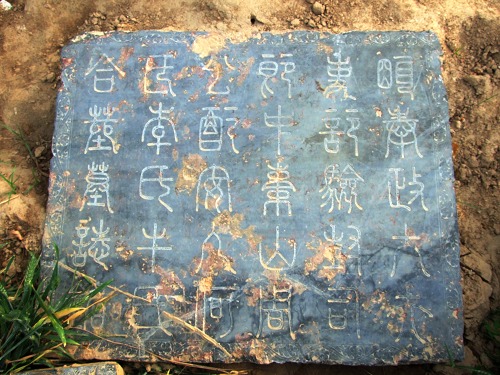 明奉政大夫
吏部驗封司
郎中山高
公配安人何
氏李氏牛氏
合葬墓誌銘